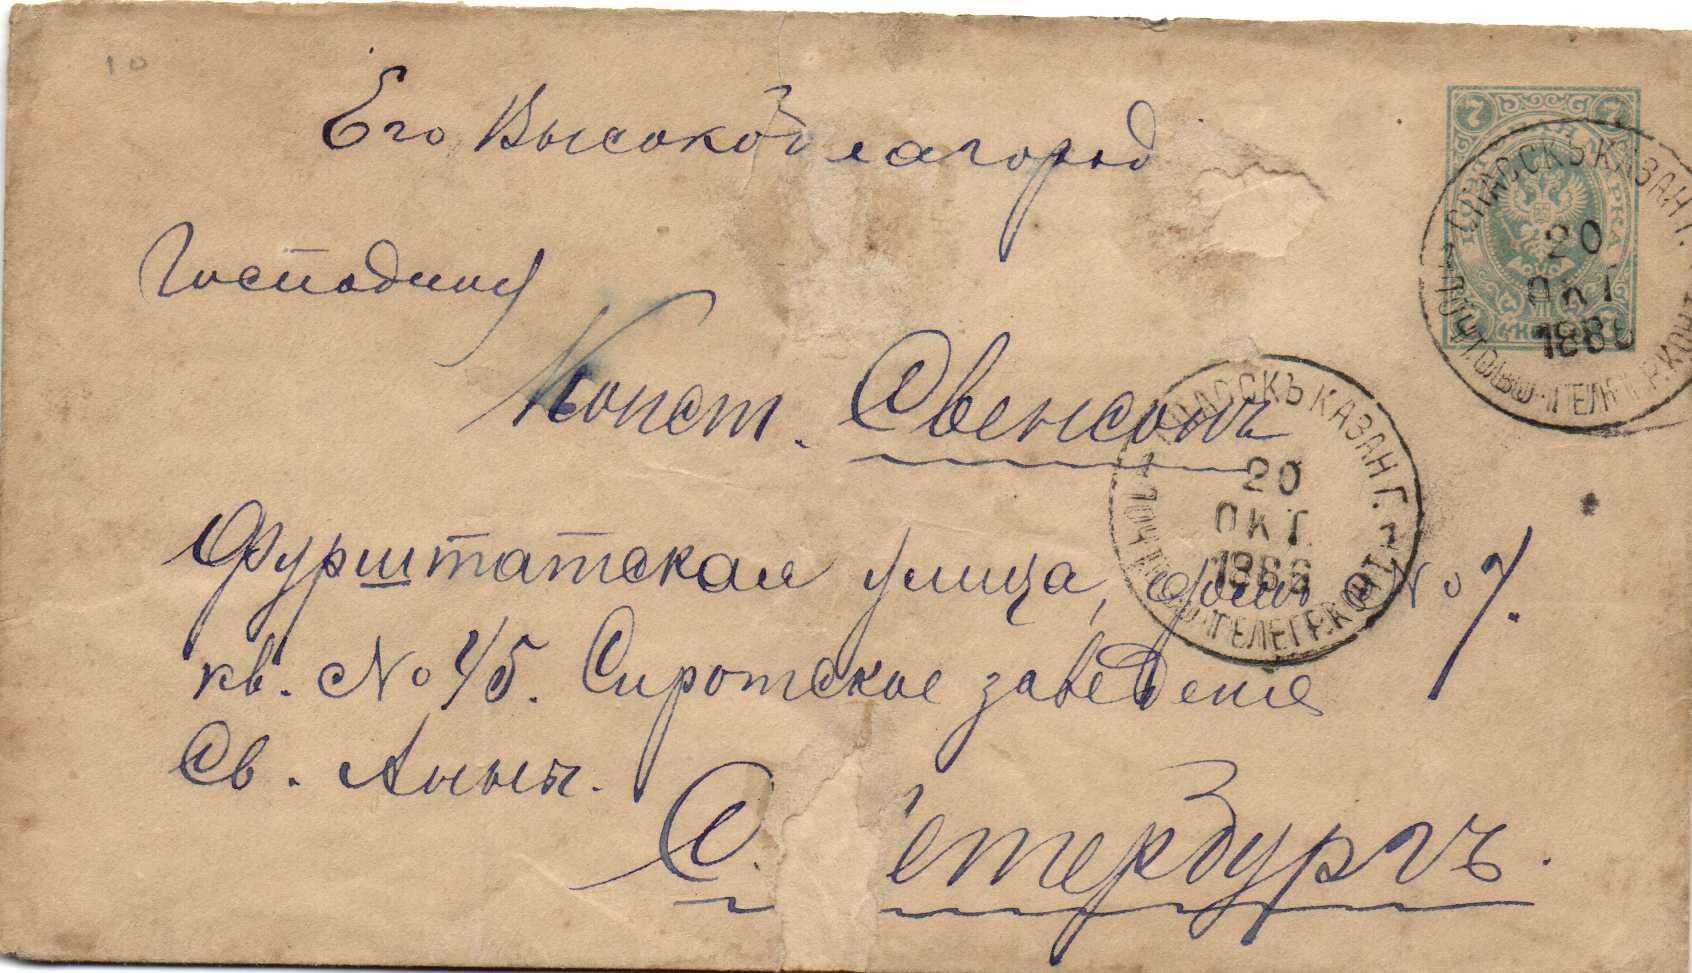 10
Его Высокоблагород
Господину
Конст. Свенсонъ
Фурштатская улица, домъ No 7.
кв. No 45. Сиротское заведение
Св. Анны.
С. Петербургъ.
7 7
СПАССКЪ КАЗАН Г.
20
ОКТ
1886
ПОЧТОВО-ТЕЛЕГР. КОНТ.
СПАССКЪ КАЗАН Г.
20
ОКТ.
1886
ПОЧТОВО-ТЕЛЕГР. КОНТ.